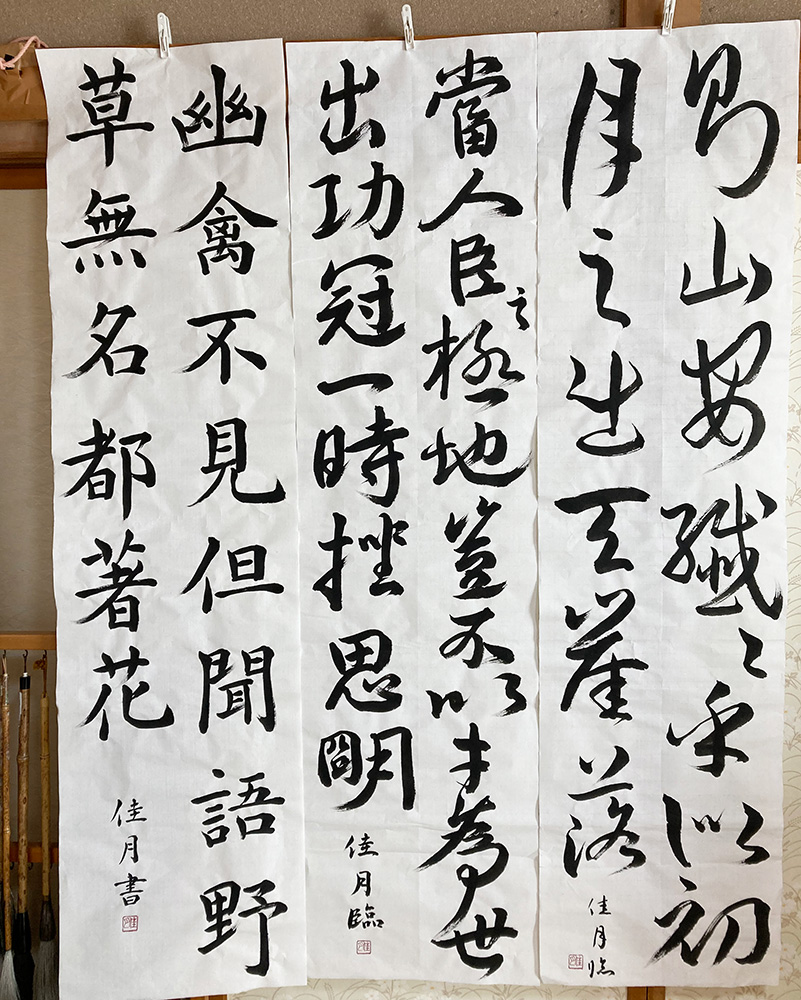 則山安纖〻乎似初
月之出天崖落
佳月臨
當人臣之極地豈不以才為世
出功冠一時挫思明
佳月臨
幽禽不見但聞語野
草無名都著花
佳月書